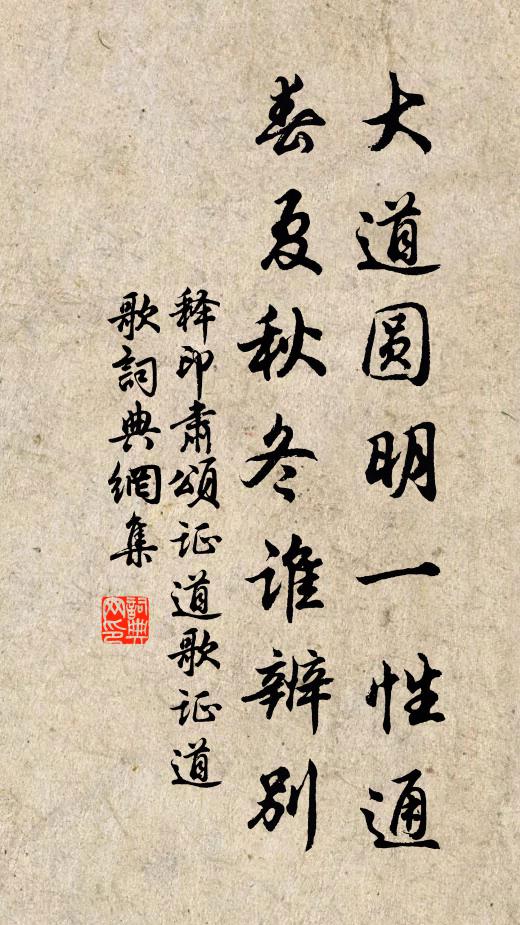 大道圆明一性通
春夏秋冬谁辨别
释印肃颂证道歌证道
歌詞典網集
詞典
网印